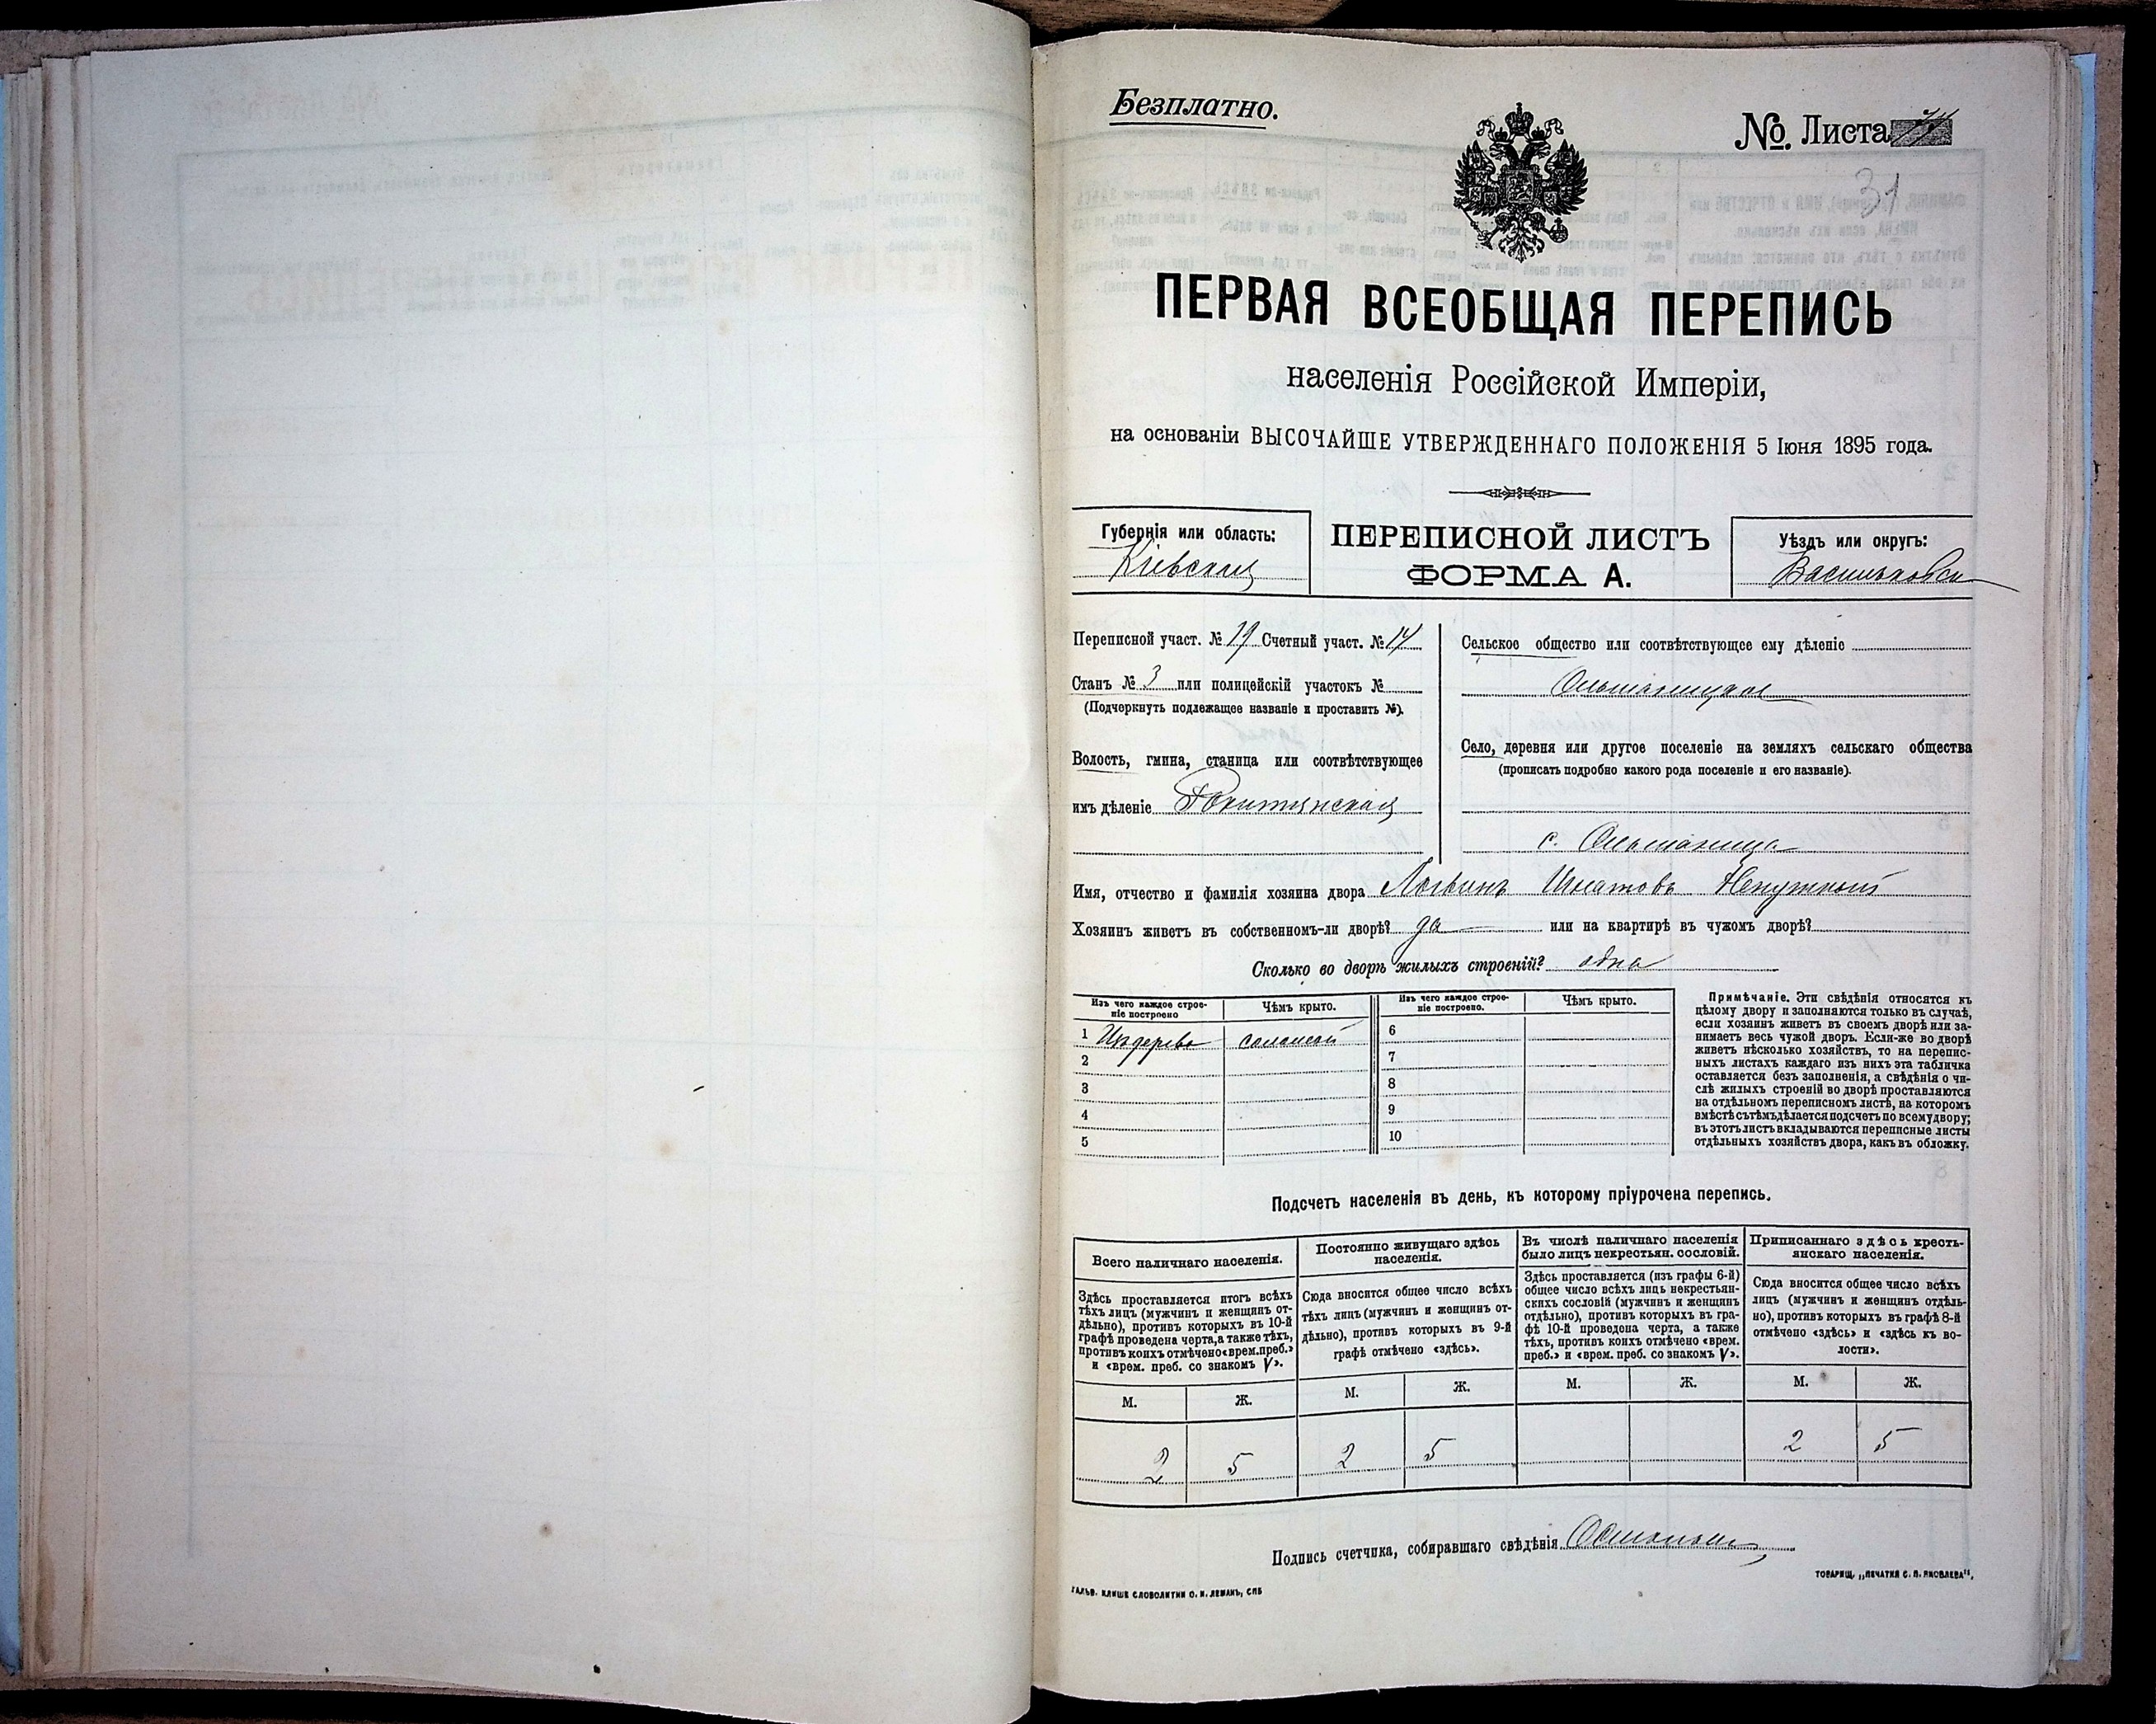 Безплатно.
№. Листа
31
ПЕРВАЯ ВСЕОБЩАЯ ПЕРЕПИСЬ
населенія Россійской Имперіи,
на основаніи ВЫСОЧАЙШЕ УТВЕРЖДЕННАГО ПОЛОЖЕНІЯ 5 Іюня 1895 года.
Губернія или область:
Кіевская
ПЕРЕПИСНОЙ ЛИСТЪ
ФОРМА А.
Уѣздъ или округъ:
Васильковск
Переписной участ. № 19 Счетный участ. № 14
Станъ № 3 или полицейскій участокъ №
(Подчеркнуть подлежащее названіе и проставить №).
Волость, гмина, станица или соотвѣтствующее
имъ дѣленіе Рокитянская
Сельское общество или соотвѣтствующее ему дѣленіе
Ольшаницкое
Село, деревня или другое поселеніе на земляхъ сельскаго общества
(прописать подробно какого рода поселеніе и его названіе).
с. Ольшаница
Имя, отчество и фамилія хозяина двора Логвинъ Игнатовъ Ненужный
Хозяинъ живетъ въ собственномъ-ли дворѣ? да или на квартирѣ въ чужомъ дворѣ?
Сколько во дворѣ жилыхъ строеній? одна
Изъ чего каждое строе-
ніе построено
Чѣмъ крыто.
1 Издерева соломой
2
3
4
5
Изъ чего каждое строе-
ніе построено.
Чѣмъ крыто.
6
7
8
9
10
Примѣчаніе. Эти свѣдѣнія относятся къ
цѣлому двору и заполняются только въ случаѣ,
если хозяинъ живетъ въ своемъ дворѣ или за-
нимаетъ весь чужой дворъ. Если-же во дворѣ
живетъ нѣсколько хозяйствъ, то на перепис-
ныхъ листахъ каждаго изъ нихъ эта табличка
оставляется безъ заполненія, а свѣдѣнія о чи-
слѣ жилыхъ строеній во дворѣ проставляются
на отдѣльномъ переписномъ листѣ, на которомъ
вмѣстѣ съ тѣмъ дѣлается подсчетъ по всему двору;
въ этотъ листъ вкладываются переписные листы
отдѣльныхъ хозяйствъ двора, какъ въ обложку.
Подсчетъ населенія въ день, къ которому пріурочена перепись.
Всего наличнаго населенія.
Здѣсь проставляется итогъ всѣхъ
тѣхъ лицъ (мужчинъ и женщинъ от-
дѣльно), противъ которыхъ въ 10-й
графѣ проведена черта, а также тѣхъ,
противъ коихъ отмѣчено «врем. преб.»
и «врем. преб. со знакомъ V».
М. Ж.
2 5
Постоянно живущаго здѣсь
населенія.
Сюда вносится общее число всѣхъ
тѣхъ лицъ (мужчинъ и женщинъ от-
дѣльно), противъ которыхъ въ 9-й
графѣ отмѣчено «здѣсь».
М. Ж.
2 5
Въ числѣ наличнаго населенія
было лицъ некрестьян. сословій.
Здѣсь проставляется (изъ графы 6-й)
общее число всѣхъ лицъ некрестьян-
скихъ сословій (мужчинъ и женщинъ
отдѣльно), противъ которыхъ въ гра-
фѣ 10-й проведена черта, а также
тѣхъ, противъ коихъ отмѣчено «врем.
преб.» и «врем. преб. со знакомъ V».
М. Ж.
Приписаннаго здѣсь кресть-
янскаго населенія.
Сюда вносится общее число всѣхъ
лицъ (мужчинъ и женщинъ отдѣль-
но), противъ которыхъ въ графѣ 8-й
отмѣчено «здѣсь» и «здѣсь къ во-
лости».
М. Ж.
2 5
Подпись счетчика, собиравшаго свѣдѣнія
ГАЛЬВ. КЛИШЕ СЛОВОЛИТНИ О. И. ЛЕМАНЪ, СПБ
ТОВАРИЩ. „ПЕЧАТНЯ С. П. ЯКОВЛЕВА“,